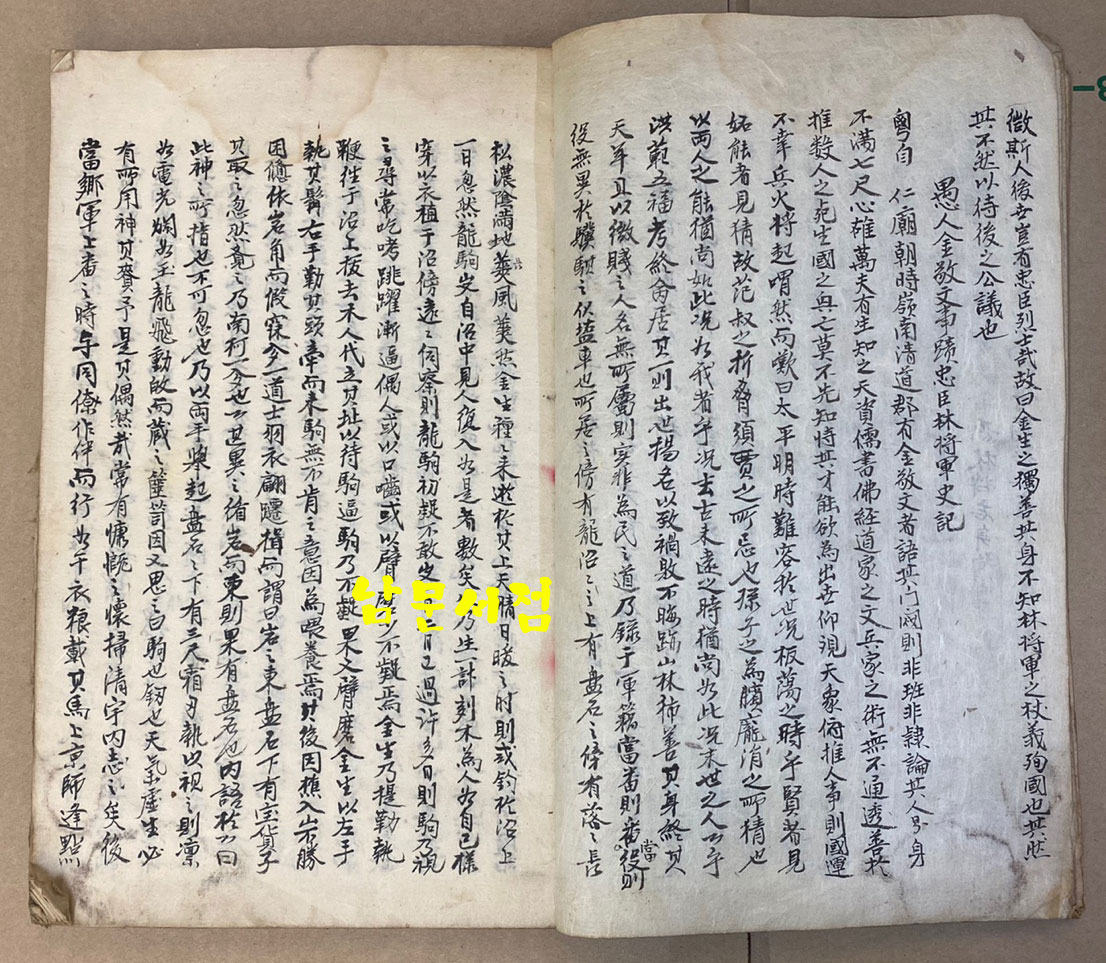 微斯人後世豈有忠臣烈士哉故曰金生之獨善其身不知林將軍之杖義殉國也其然
其不然以待後之公議也
愚人金敬文事蹟忠臣林將軍史記
粤自 仁廟朝時嶺南淸道郡有金敬文者語其門閥則非班非隷論其人身
不滿七尺心雄萬夫有生知之天資儒書佛経道家之文兵家之術無不通透善於
推数人之死生國之興亡莫不先知時其才能欲爲出世仰覌天象俯推人事則國運
不幸兵火将起喟然而歎曰太平明時難容於世况板蕩之時乎賢者見
妬能者見猜故范叔之折脅須賈之所忌也孫子之爲臏龐涓之所猜也
以両人之能猶尚如此况如我者乎况去古未遠之時猶尚如此况末世之人心乎
洪範五福考終命居其一則出世揚名以致禍敗不晦跡山林獨善其身終其
天年且以微賤之人名無所屬則實非爲民之道乃録于軍籍當番則番役則
當
役無異於騏驥之伏塩車也所居之傍有龍沼之上有盤石之傍有落之長
松濃陰滿地爽風蕭然金生種之來遊於其上天晴日暖之时則或釣於沼上
一日忽然龍駒安自沼中見人復入如是者數矣乃生一計刻木爲人如自己樣
穿以衣植于沼傍遠之伺察則龍駒初疑不敢出一二月已過許多日則駒乃視
之尋常屹立跳躍漸逼偶人或以口嚙或以臂磨少不疑焉金生乃提勒執
鞭徃于沼上拔去木人代立其址以待駒逼駒乃不疑果又臂磨金生以左手
執其鬐右手勒其頭牽而來駒無不肯之意因爲喂養焉其後因樵入山不勝
困憊依岩角而假寐夢一道士羽衣翩躚揖而謂曰岩之東盤石下有宝貨子
其取之忽然竟之乃南柯一夢也心甚異之循岩而東則果有盤石也内語於心曰
此神之所指也不可忽也乃以両手擧起盤石之下有三尺霜刃執以視之則凛
如電光爛如玉龍飛動故而藏之篋笥因又思之白駒也釼也天氣虛生必
有所用神其賚予是其偶然哉常有慷慨之懷掃清宇内志之矣後
當鄉軍上番之時与同僚作伴而行如干衣粮戴其馬上京師逢點
남문서점